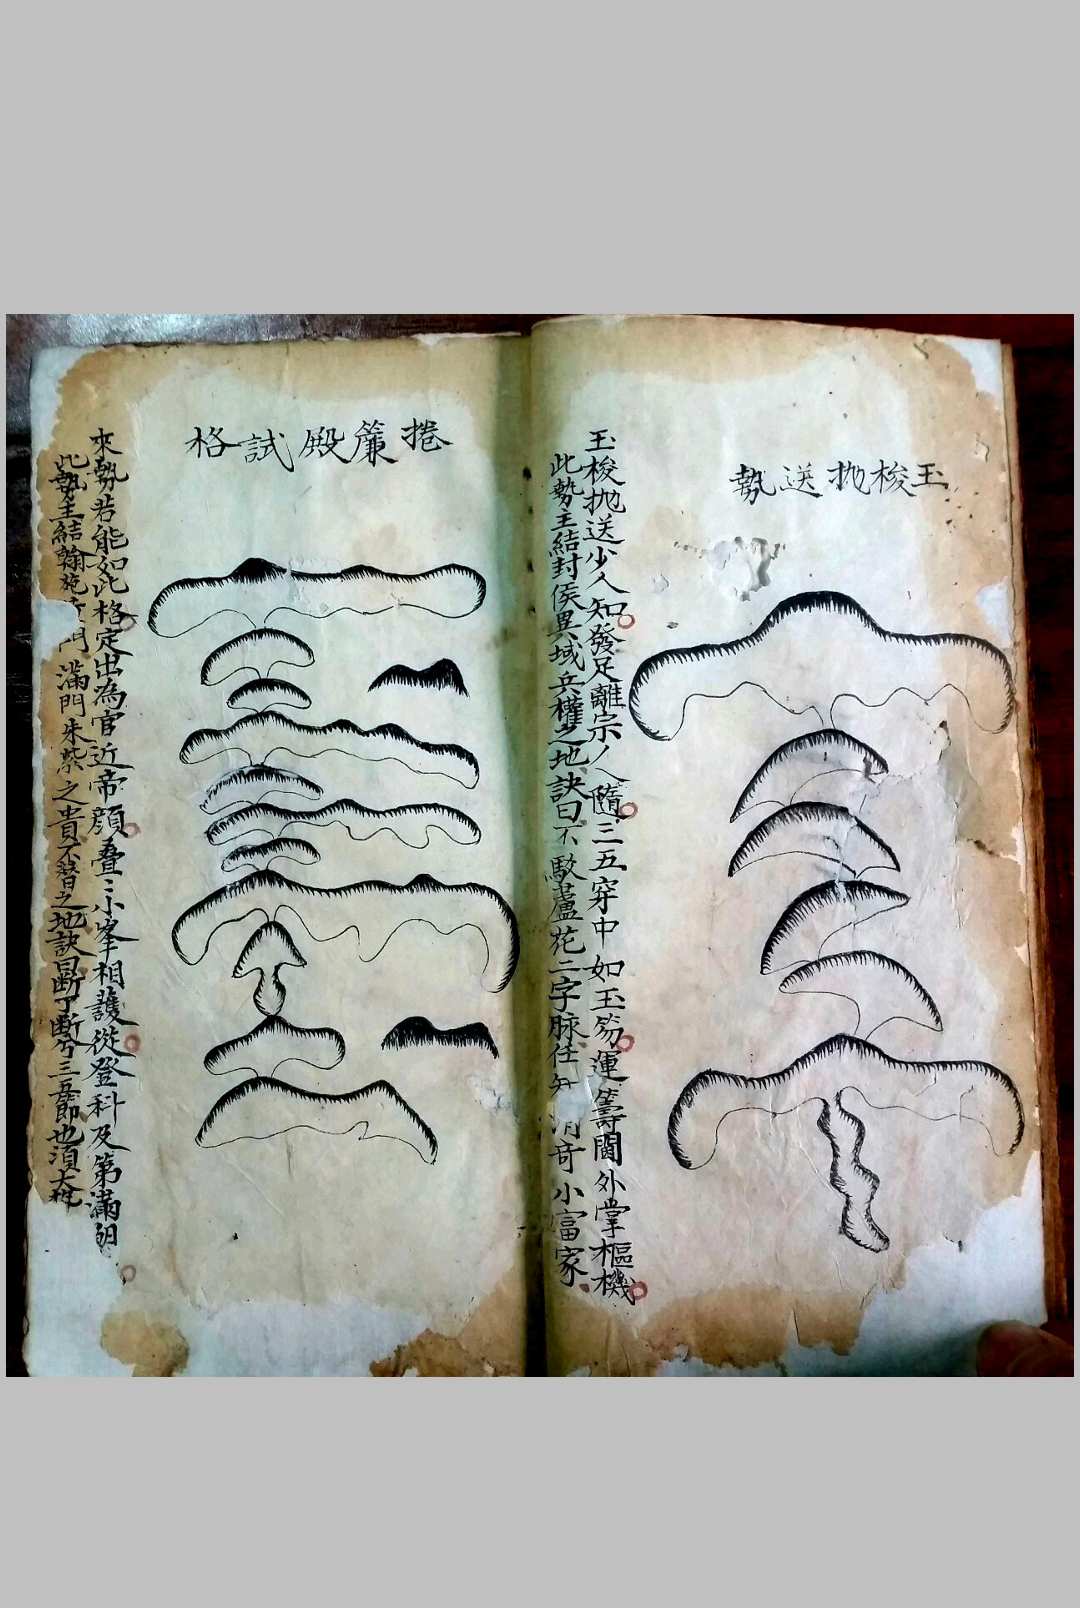 玉梭抛送勢
玉梭抛送少人知發足離宗八八隨三五穿中如玉笏運籌閫外掌樞機
此勢主結封侯異域兵權之地訣曰不駁蘆花二字脉任 消奇小富家
捲簾殿試格
來勢若能如此格定出為官近帝顔叠〻小峯相護從登科及第滿朝
此勢主結翰 門滿門朱紫之貴不替之地訣曰斷了斷兮三五節也須大